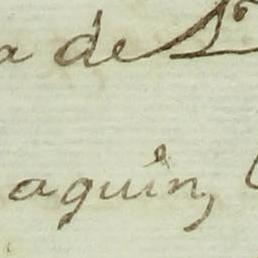 a de S.n
aquin,